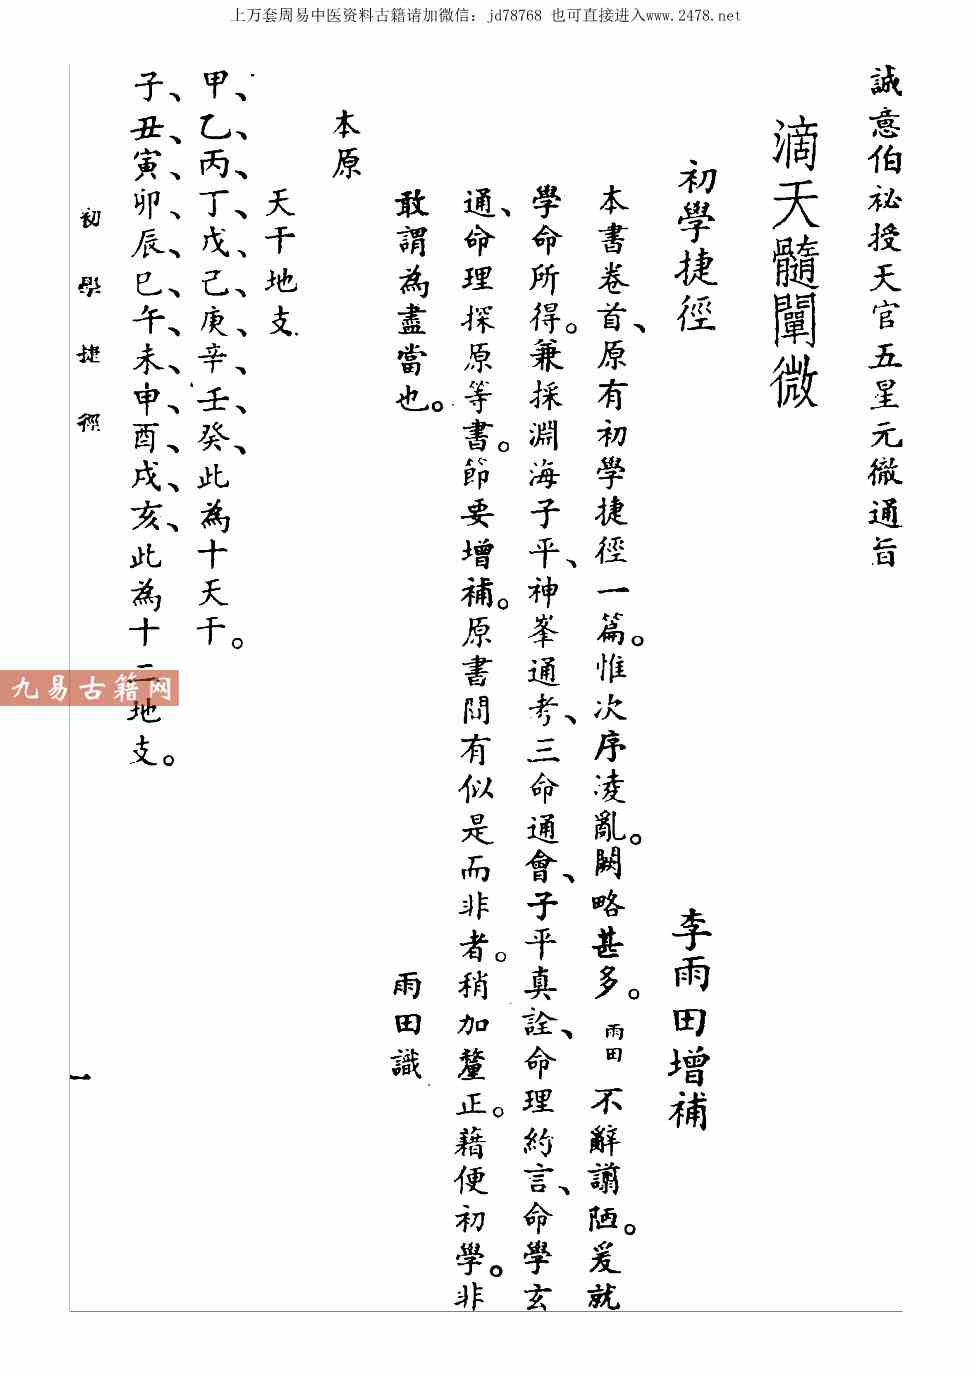 上万套周易中医资料古籍请加微信：jd78768 也可直接进入www.2478.net
誠意伯祕授天官五星元徹通旨
滴天髓闡微
初學捷徑
李雨田增補
本書卷首、原有初學捷徑一篇。惟次序淩亂。闕略甚多。雨田不辭譾陋。爰就
學命所得。兼採淵海子平、神峯通考、三命通會、子平真詮、命理約言、命學玄
通、命理探原等書。節要增補。原書間有似是而非者。稍加釐正。藉便初學。非
敢謂為盡當也。
雨田識
本原
天干地支
甲、乙、丙、丁、戊、己、庚、辛、壬、癸、此為十天干。
子、丑、寅、卯、辰、巳、午、未、申、酉、戌、亥、此為十二地支。
初學捷徑
一
九易古籍网